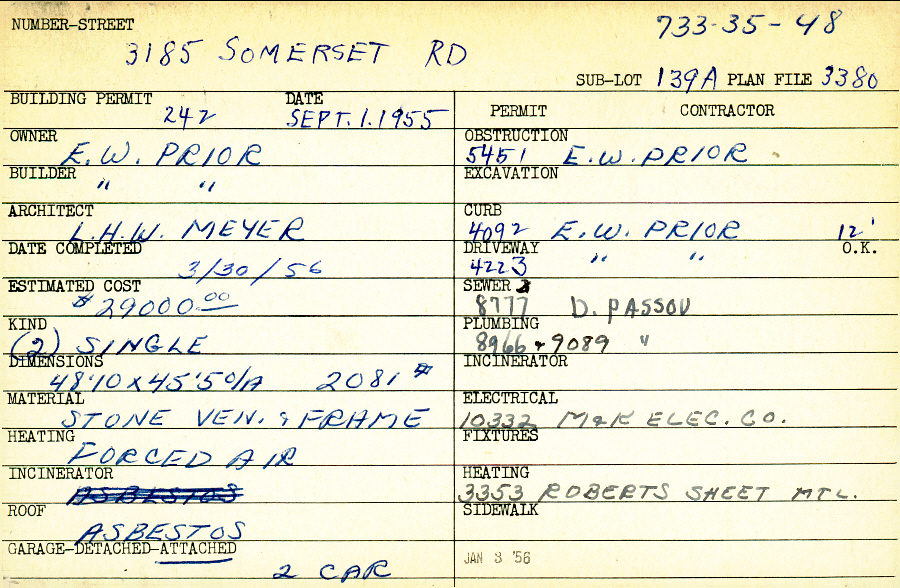 NUMBER-STREET 733-35-48
3185 SOMERSET RD
SUB-LOT 139A PLAN FILE 3380
BUILDING PERMIT DATE
242 SEPT. 1. 1955
OWNER
E. W. PRIOR
BUILDER
" "
ARCHITECT
L.H.W. MEYER
DATE COMPLETED
3/30/56
ESTIMATED COST
$29000.00
KIND
(2) SINGLE
DIMENSIONS
48'10 x 45'5 O/A 2081 #
MATERIAL
STONE VEN. & FRAME
HEATING
FORCED AIR
INCINERATOR
ASBESTOS
ROOF
ASBESTOS
GARAGE-DETACHED-ATTACHED
2 CAR
PERMIT CONTRACTOR
OBSTRUCTION
5451 E.W. PRIOR
EXCAVATION
CURB
4092 E. W. PRIOR 12'
DRIVEWAY O.K.
4223 " "
SEWER
8777 D. PASSOV
PLUMBING
8966 & 9089 "
INCINERATOR
ELECTRICAL
10332 M&K ELEC. CO.
FIXTURES
HEATING
3353 ROBERTS SHEET MTL.
SIDEWALK
JAN 3 '56